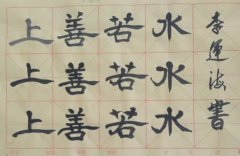 上善若水
上善若水
上善若水
李运海書